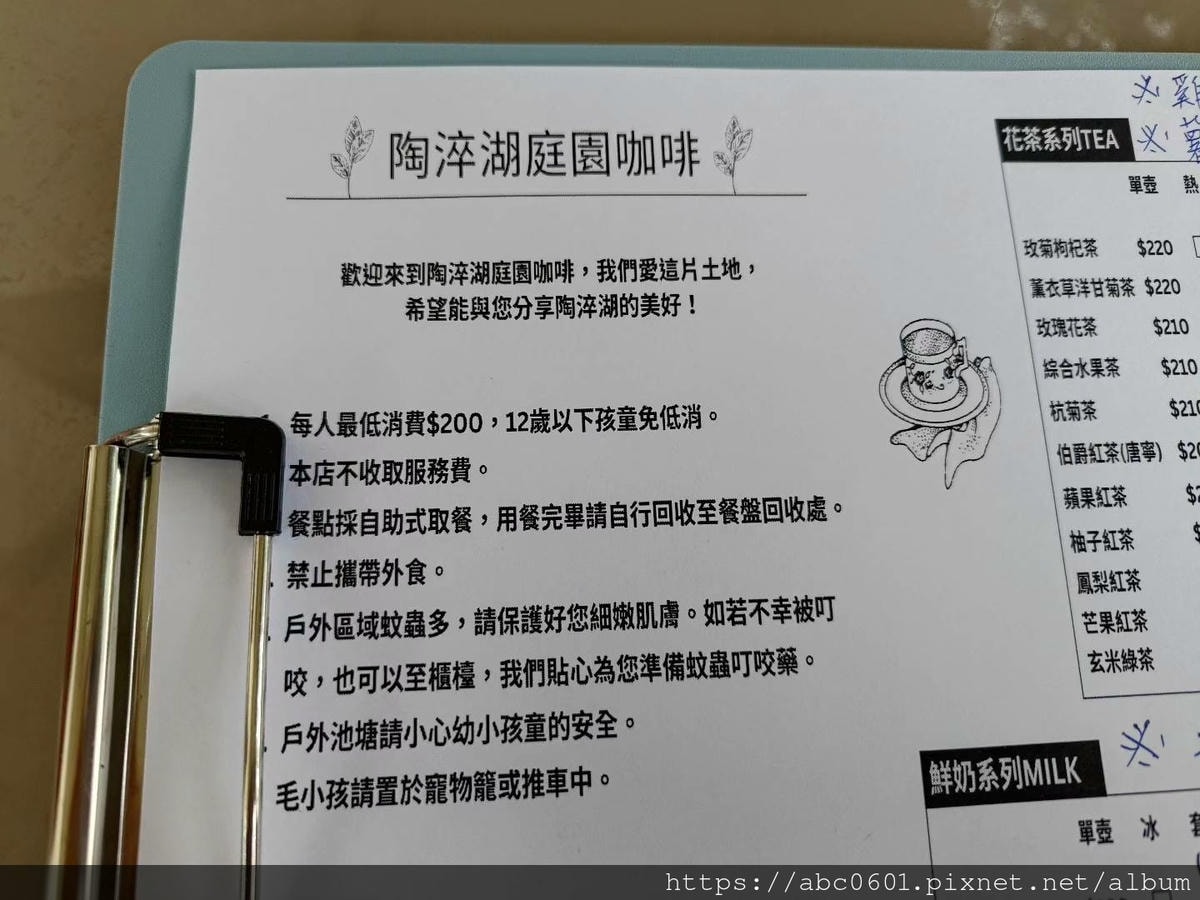 陶淬湖庭園咖啡
歡迎來到陶淬湖庭園咖啡，我們愛這片土地，
希望能與您分享陶淬湖的美好！
每人最低消費$200，12歲以下孩童免低消。
本店不收取服務費。
餐點採自助式取餐，用餐完畢請自行回收至餐盤回收處。
禁止攜帶外食。
戶外區域蚊蟲多，請保護好您細嫩肌膚。如若不幸被叮
咬，也可以至櫃檯，我們貼心為您準備蚊蟲叮咬藥。
戶外池塘請小心幼小孩童的安全。
毛小孩請置於寵物籠或推車中。
花茶系列TEA
單壺 熱
玫菊枸杞茶 $220
薰衣草洋甘菊茶 $220
玫瑰花茶 $210
綜合水果茶 $210
杭菊茶 $210
伯爵紅茶(唐寧)
蘋果紅茶
柚子紅茶
鳳梨紅茶
芒果紅茶
玄米綠茶
鮮奶系列MILK
單壺 冰
https://abc0601.pixnet.net/album